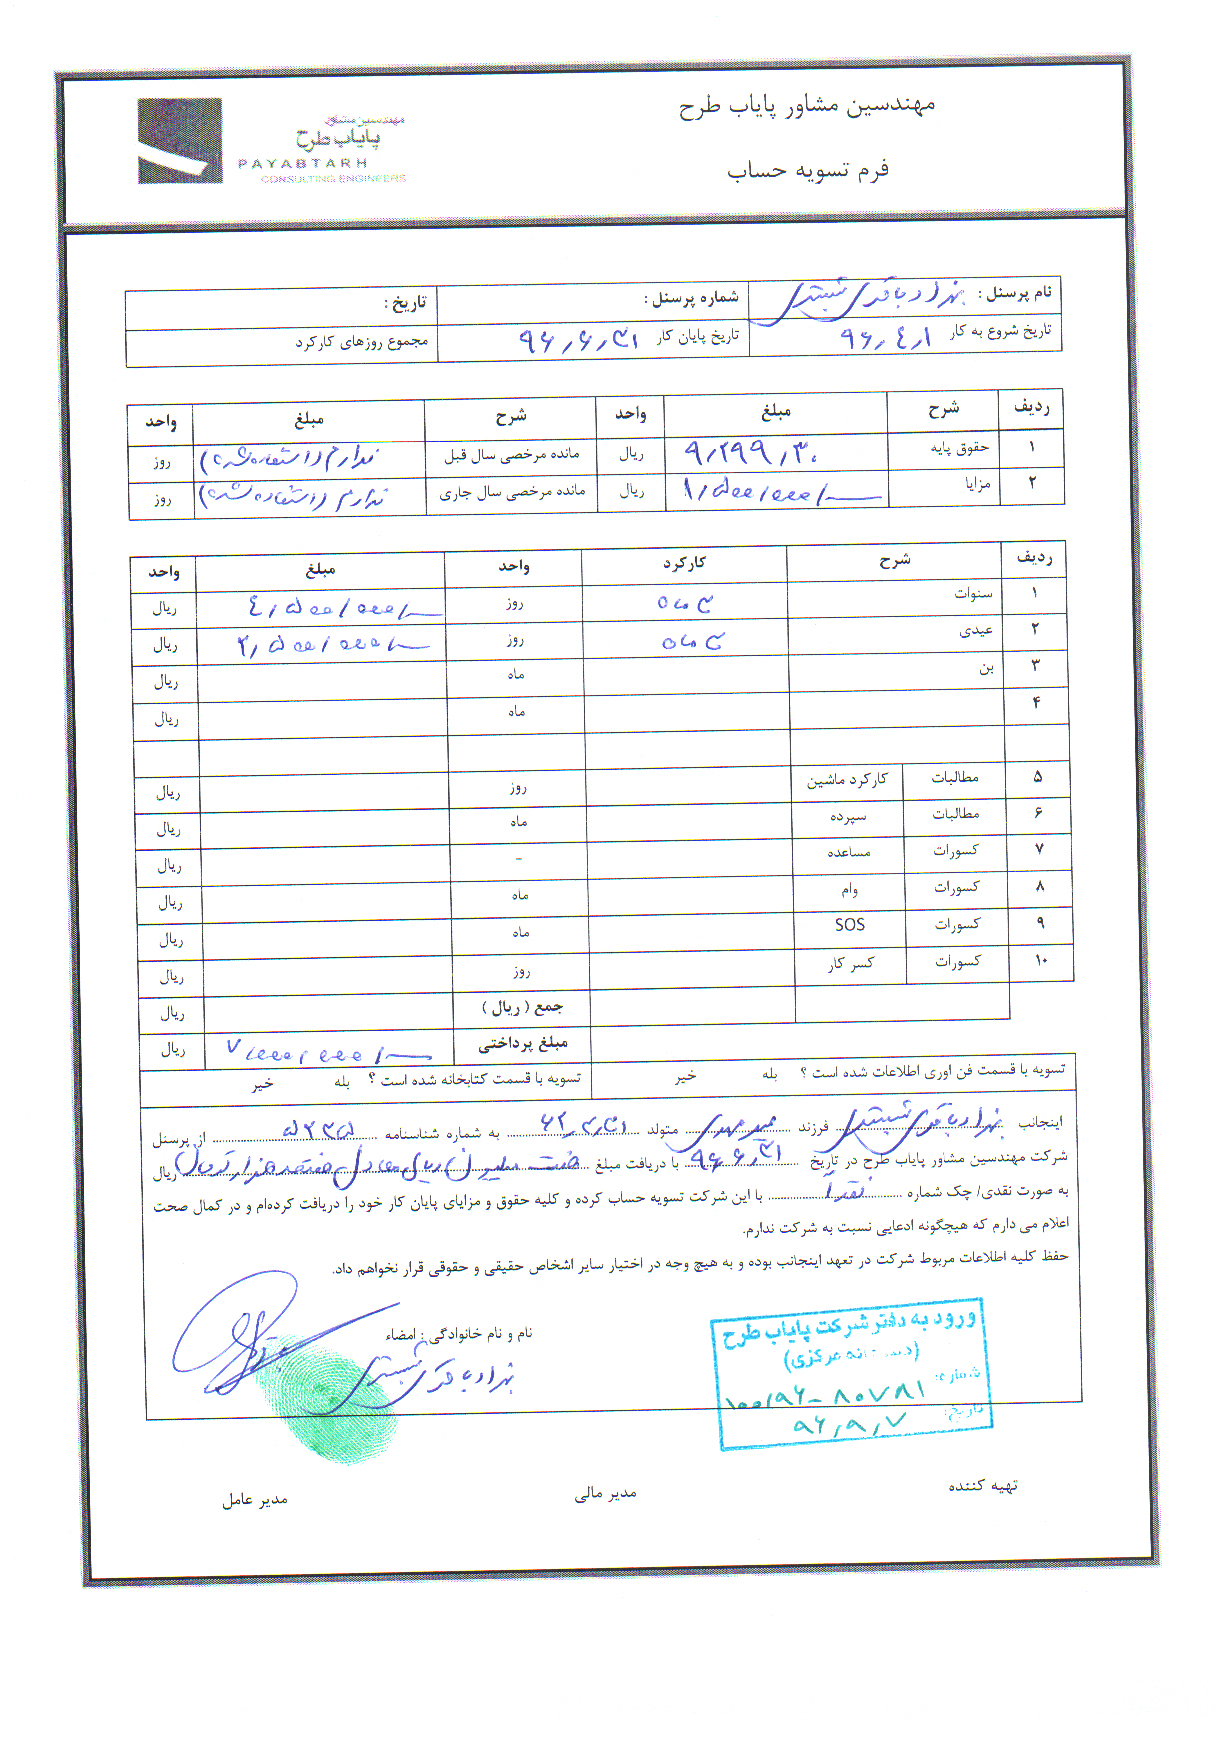 مهندسین مشاور پایاب طرح
فرم تسویه حساب
مهندسین مشاور
پایاب طرح
PAYABTARH
CONSULTING ENGINEERS
نام پرسنل : بهزاد باقری شبستری
شماره پرسنل :
تاریخ :
تاریخ شروع به کار ۹۶٫۴٫۱
تاریخ پایان کار ۹۶٫۶٫۳۱
مجموع روزهای کارکرد
ردیف شرح مبلغ واحد شرح مبلغ واحد
۱ حقوق پایه ۹٫۲۹۹٫۳۰ ریال مانده مرخصی سال قبل ندارم (استفاده شده) روز
۲ مزایا ۱٫۵۰۰٫۰۰۰٫— ریال مانده مرخصی سال جاری ندارم (استفاده شده) روز
ردیف شرح کارکرد واحد مبلغ واحد
۱ سنوات ۳ ماه روز ۴٫۵۰۰٫۰۰۰٫— ریال
۲ عیدی ۳ ماه روز ۲٫۵۰۰٫۰۰۰٫— ریال
۳ بن ماه ریال
۴ ماه ریال
۵ مطالبات کارکرد ماشین روز ریال
۶ مطالبات سپرده ماه ریال
۷ کسورات مساعده - ریال
۸ کسورات وام ماه ریال
۹ کسورات SOS ماه ریال
۱۰ کسورات کسر کار روز ریال
جمع ( ریال ) ریال
مبلغ پرداختی ۷٫۰۰۰٫۰۰۰٫— ریال
تسویه با قسمت فن اوری اطلاعات شده است ؟ بله خیر تسویه با قسمت کتابخانه شده است ؟ بله خیر
اینجانب بهزاد باقری شبستری فرزند متولد ۶۲٫۳٫۳۱ به شماره شناسنامه ۵۲۳۵ از پرسنل
شرکت مهندسین مشاور پایاب طرح در تاریخ ۹۶٫۶٫۳۱ با دریافت مبلغ هفت میلیون ریال معادل هفتصد هزار تومان ریال
به صورت نقدی/ چک شماره نقداً با این شرکت تسویه حساب کرده و کلیه حقوق و مزایای پایان کار خود را دریافت کرده‌ام و در کمال صحت
اعلام می دارم که هیچگونه ادعایی نسبت به شرکت ندارم.
حفظ کلیه اطلاعات مربوط شرکت در تعهد اینجانب بوده و به هیچ وجه در اختیار سایر اشخاص حقیقی و حقوقی قرار نخواهم داد.
نام و نام خانوادگی : امضاء
بهزاد باقری شبستری
ورود به دفتر شرکت پایاب طرح
(دبیرخانه مرکزی)
شماره: ۱۰۰٫۹۶-۸۰۷۸۱
تاریخ: ۹۶٫۹٫۷
تهیه کننده
مدیر مالی
مدیر عامل